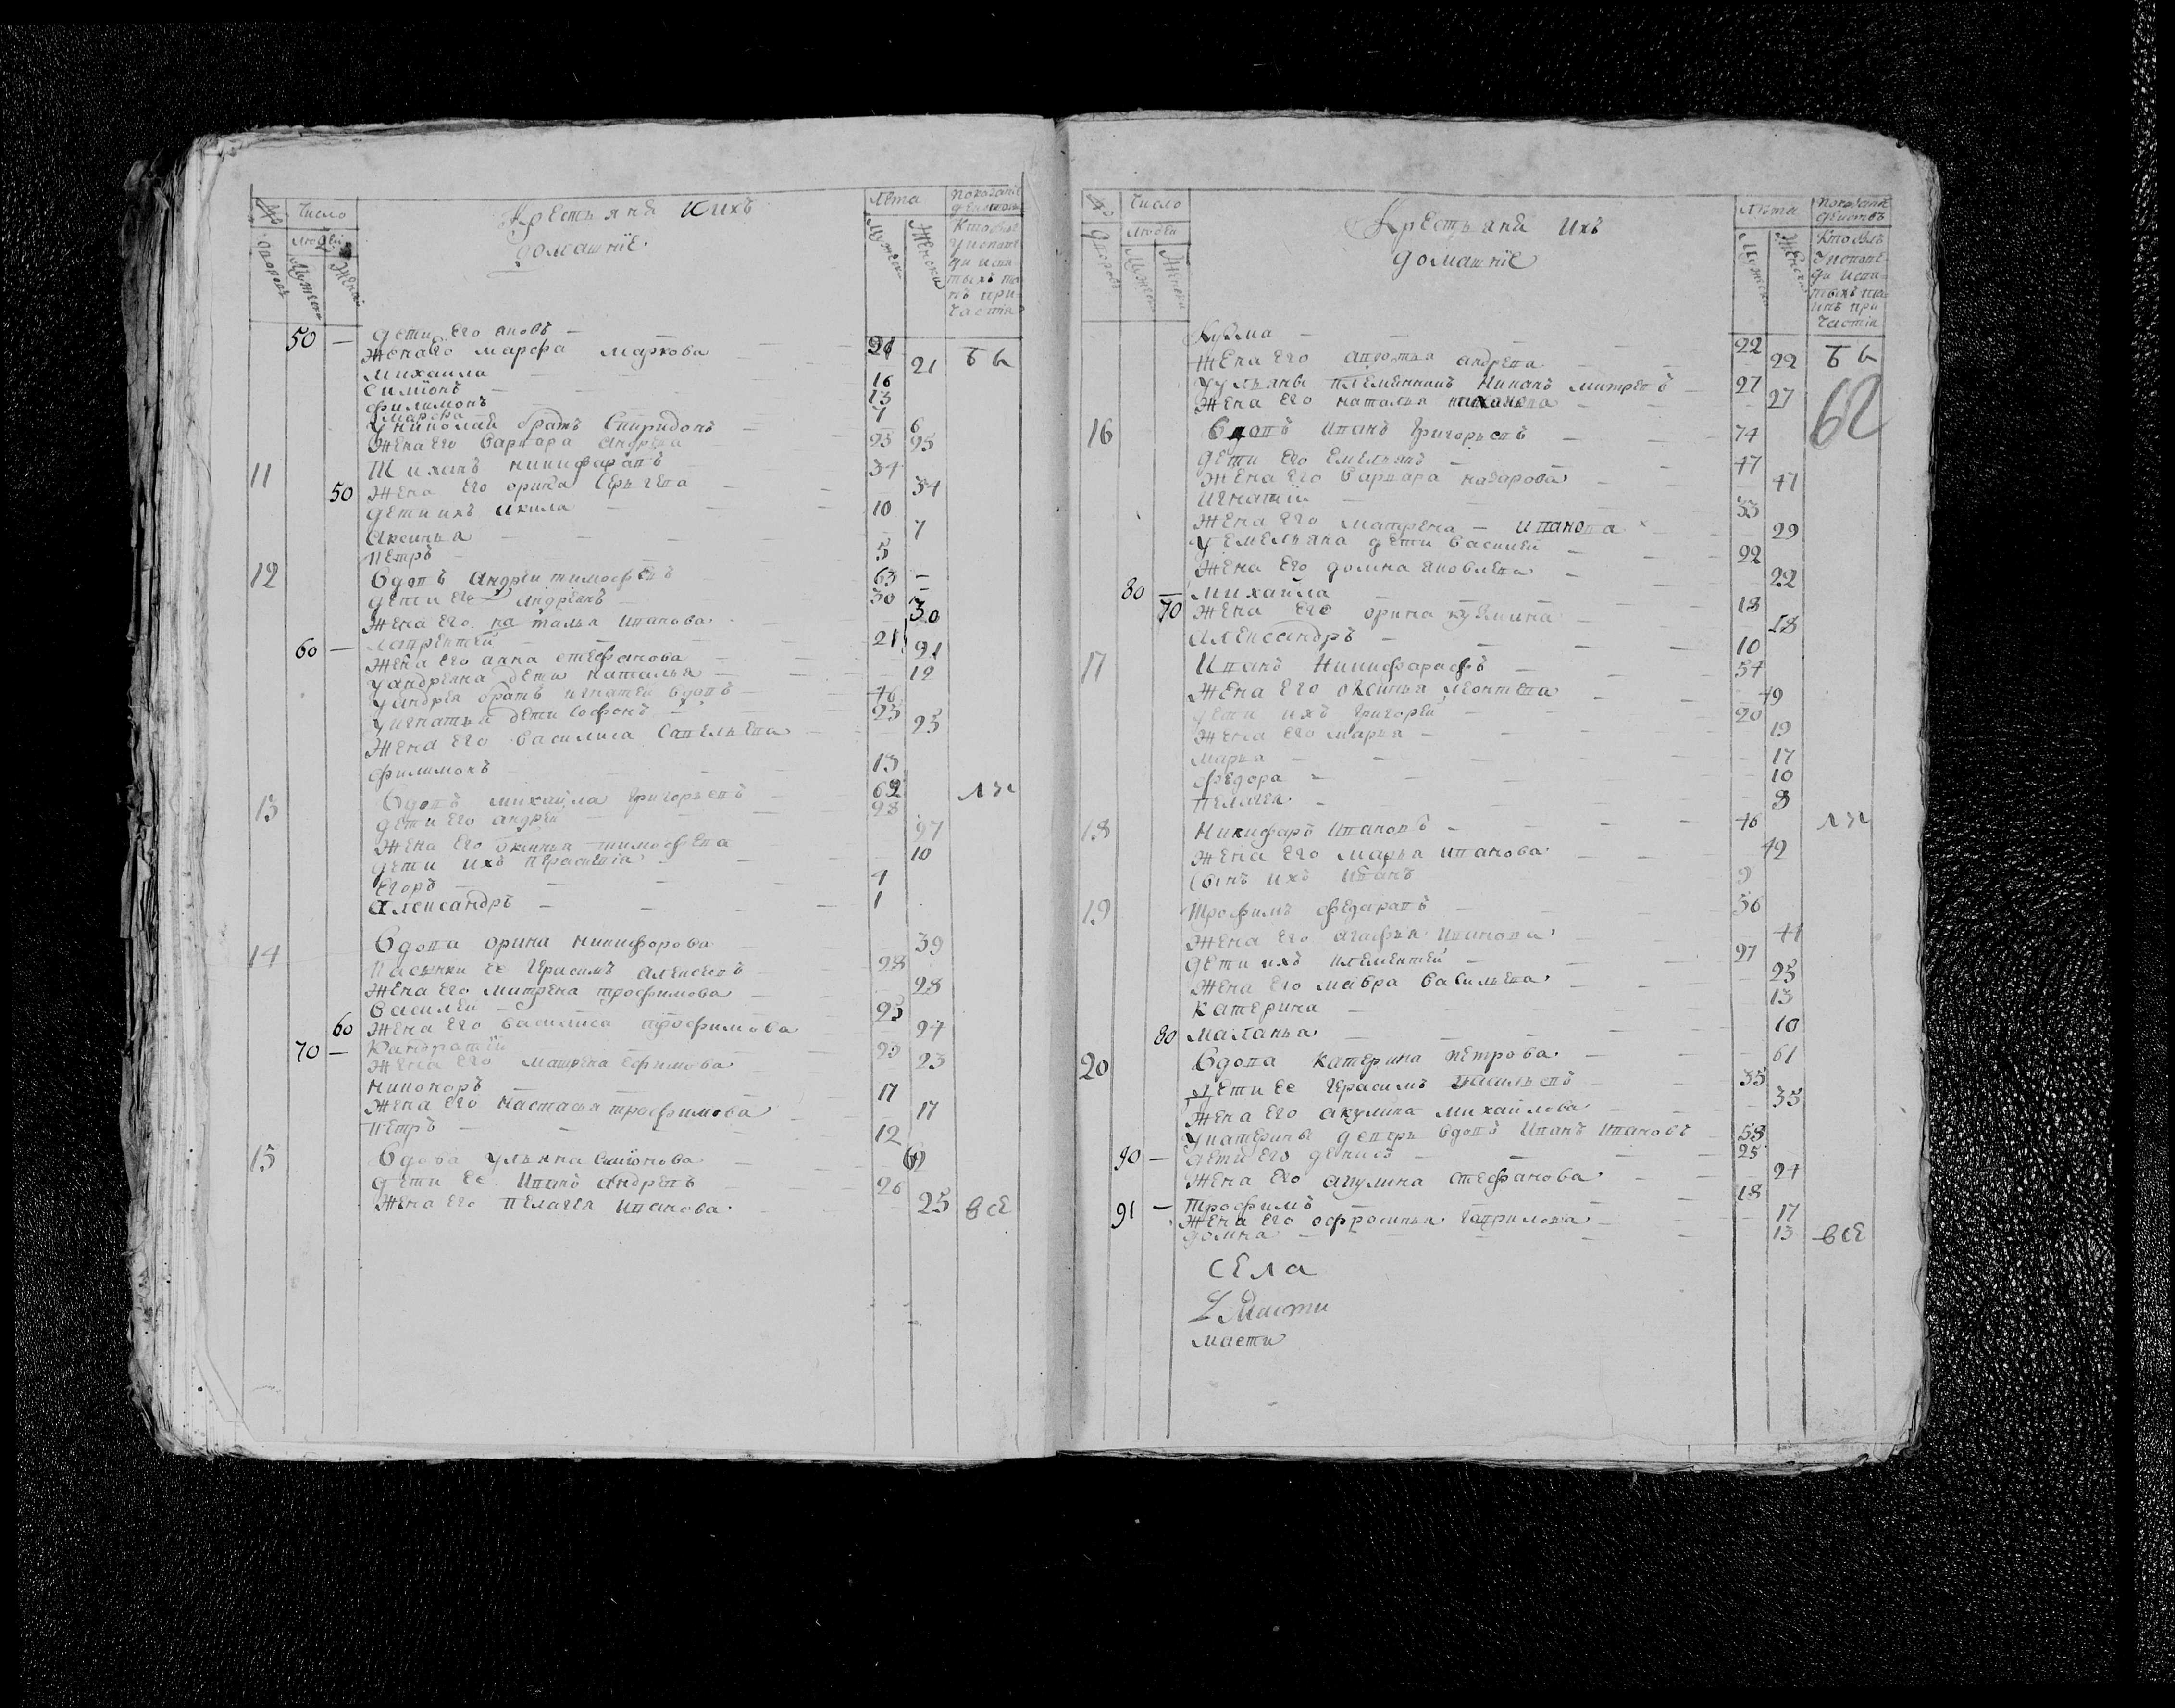 №
дворовъ
Число
людей
Мужеска
Женска
Крестьяне и ихъ
домашніе
Лѣта
Мужеска
Женска
50 — дети его яковъ — 26
жена его марфа маркова — 21 бы
михаила — 16
Симионъ — 13
филимонъ — 7
марфа — 6
У николай братъ Спиридонъ — 25
Жена его варвара андреева 25
11 Тиханъ никифаровъ 34
50 жена его орина Сергѣева — 34
дети ихъ акила — 10
Аксинья — 7
Петръ — 5
12 вдовъ андрей тимофѣевъ 63 —
дети его андреянъ — 30
жена его наталья иванова — 30
60 — Лаврентей — 21
жена его анна стефанова — 21
У андреяна дети наталья — 12
У андрея братъ игнатей вдовъ — 46
У игнатья дети Софонъ — 25
жена его василиса Савельева — 25
филимонъ — 13
13 вдовъ михайла григорьевъ — 62
дети его андрей — 28
жена его оксинья тимофѣева 27
дети ихъ Парасковія 10
Егоръ — 4
Александръ — 1
14 вдова орина никифорова 39
Пасынки ее герасимъ алексеевъ 28
жена его матрена трофимова 28
василей — 25
60 жена его василиса трофимова 24
70 — Кандратей 23
жена его матрена ефимова 23
Никоноръ — 17
жена его настасья трофимова 17
Петръ — 12
15 вдова ульяна Симионова
дети ее иванъ андреевъ — 26
жена его пелагея иванова 25 все
№
дворовъ
Число
людей
Мужеска
Женска
Крестьяне ихъ
домашніе
Лѣта
Мужеска
Женска
Кузма — 22
жена его авдотья андреева — 22 бы
У ульяны племянникъ Никанъ митревъ — 27
жена его наталья — 27
62
16 вдовъ иванъ григорьевъ — 74
дети его емельянъ — 47
жена его варвара назарова — 47
Игнатій — 33
жена его матрена — иванова 29
У емельяна дети василей — 22
жена его домна яковлева 22
80 — Михаила — 18
70 жена его орина кузмина 18
Александръ — 10
17 Иванъ Никифарафъ — 54
жена его оксинья леонтева — 49
дети ихъ григорей — 20
жена его марья — 19
марья — 17
федора — 10
пелагея — 8
18 Никифаръ ивановъ — 46
жена его марья иванова — 42
сынъ ихъ иванъ 9
19 Трофимъ федаравъ — 56
жена его агафья иванова 44
дети ихъ клементей — 27
жена его мавра васильева 25
катерина — 13
80 маланья — 10
20 вдова катерина петрова — 61
дети ее герасимъ васильевъ — 35
жена его акулина михайлова 35
У катерины деверь вдовъ иванъ ивановъ — 58
90 — дети его денисъ — 25
жена его акулина стефанова 24
91 — Трофимъ — 18
жена его офросинья гаврилова 17
домна — 13 все
села
Масти
масти